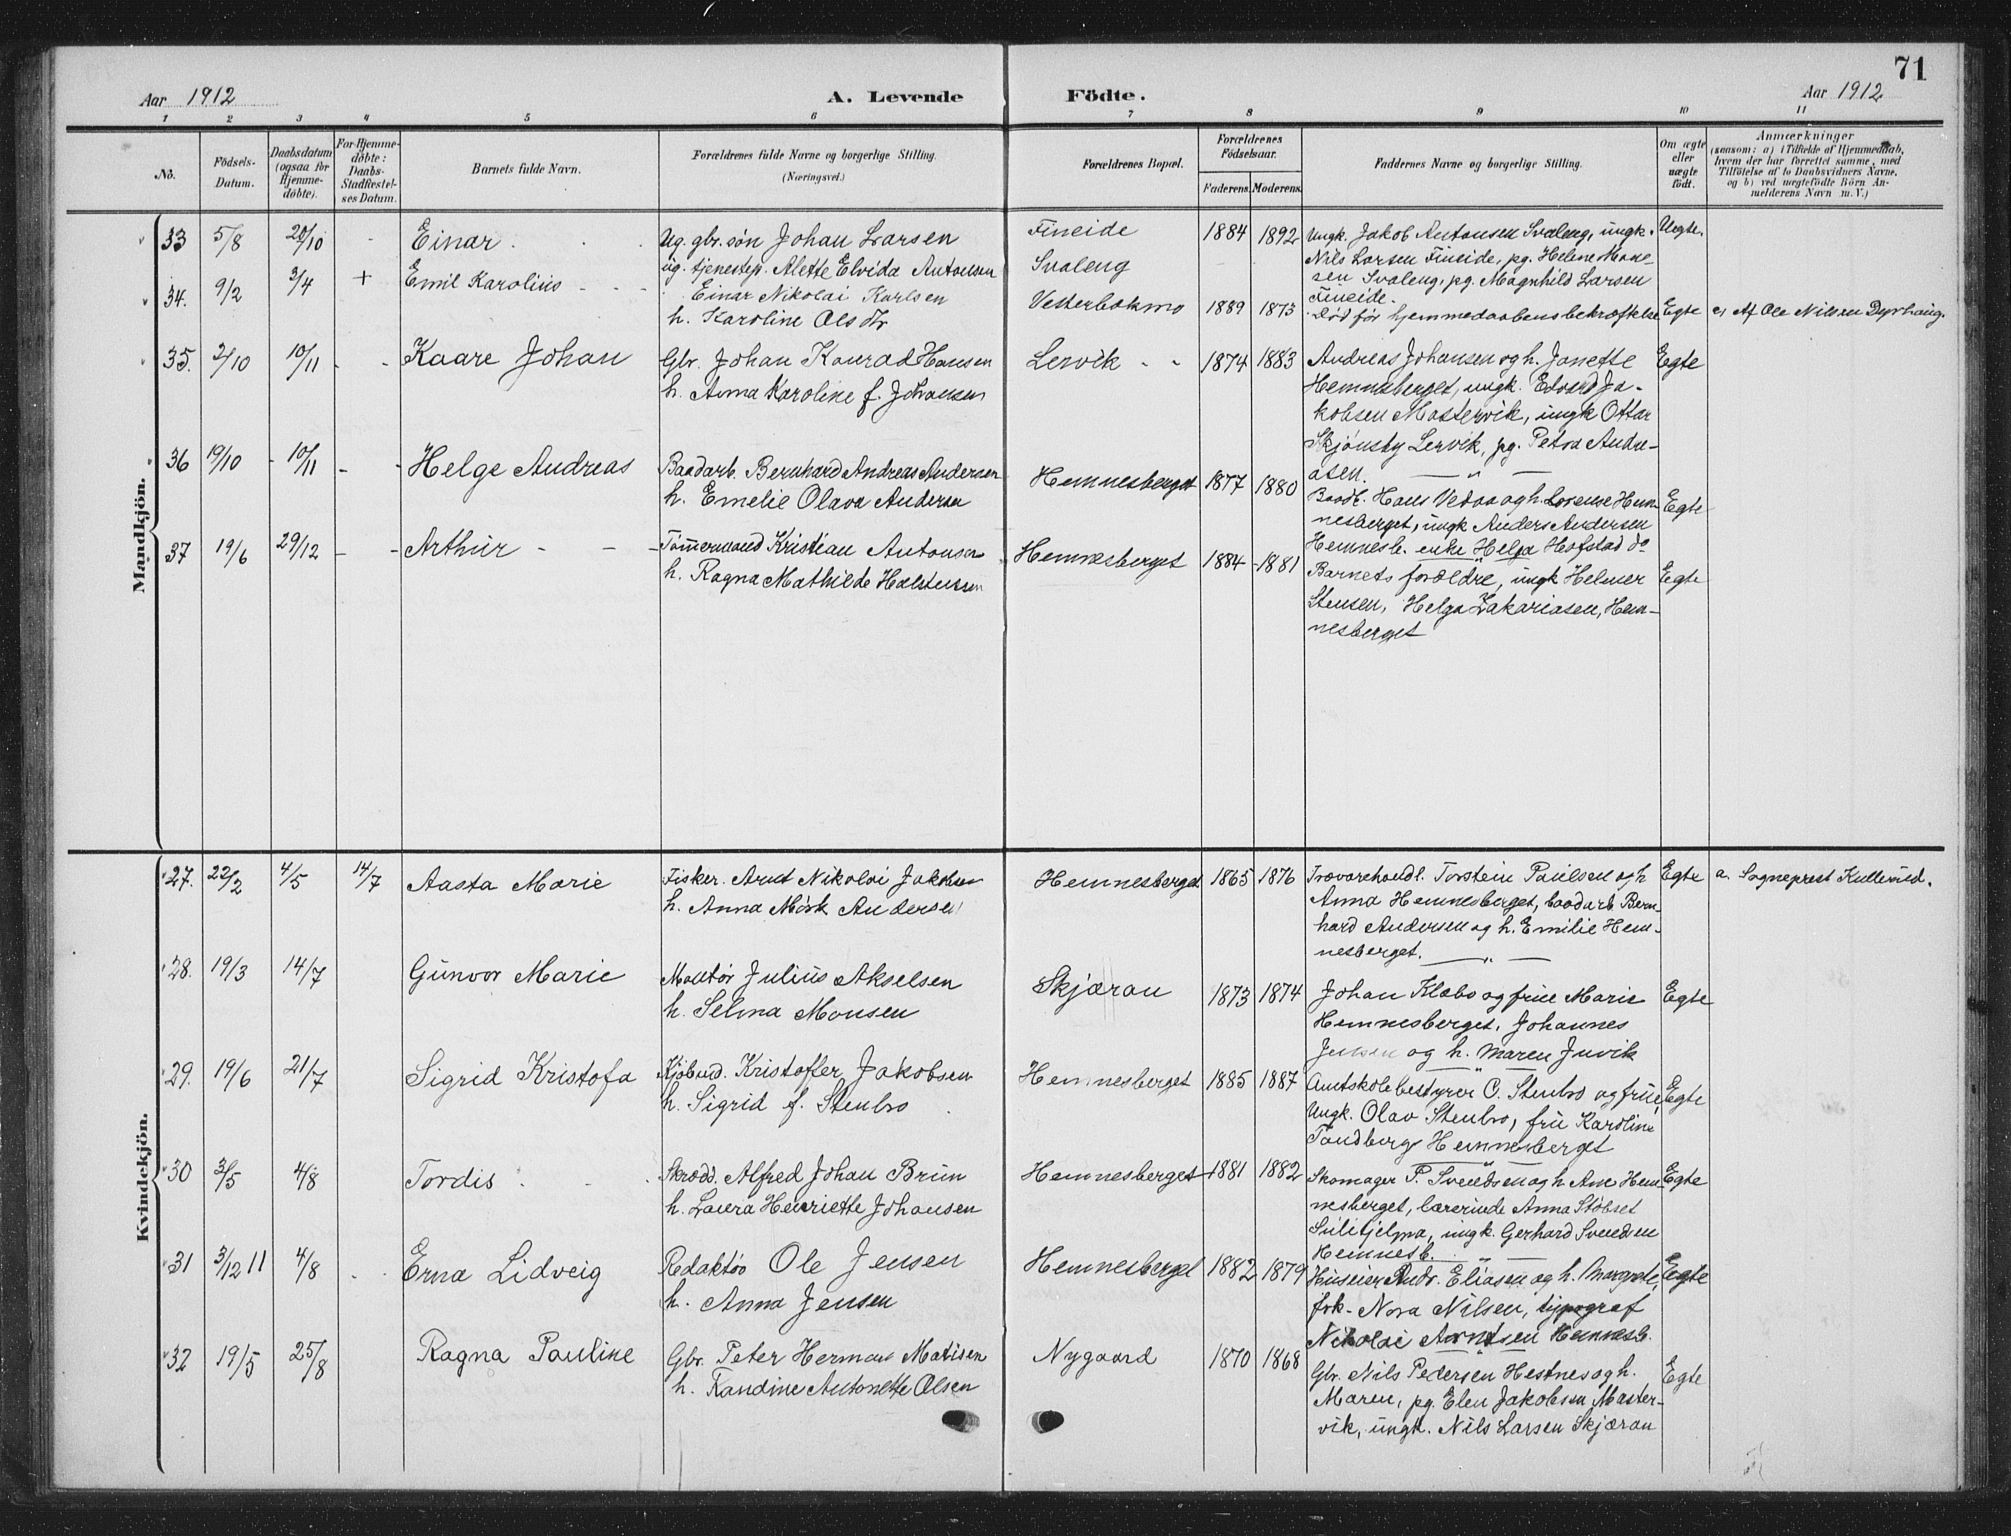 71
Aar 1912
A. Levende
Födte.
Aar 1912
1 2 3 4 5 6 7 8 9 10 11
No.
Födsels-
Datum.
Daabsdatum
(ogsaa for
Hjemme-
döbte).
For Hjemme-
döbte:
Daabs-
Stadfæstel-
ses Datum.
Barnets fulde Navn.
Forældrenes fulde Navne og borgerlige Stilling.
(Næringsvei.)
Forældrenes Bopæl.
Forældrenes
Födselsaar.
Faderens. Moderens.
Faddernes Navne og borgerlige Stilling.
Om ægte
eller
uægte
födt.
Anmærkninger
(saasom: a) i Tilfælde af Hjemmedaab,
hvem der har forrettet samme, med
Tilföielse af to Daabsvidners Navne,
og b) ved uægtefödte Börn An-
melderens Navn m. V.)
Mandkjön.
33 5/8 20/10 - Einar
Ug. gbr. søn Johan Larsen
ug. tjenestep. Alette Elvida Antonsen
Fineide
Svaleng
1884 1892
Ungk. Jakob Antonsen Svaleng, ungk.
Nils Larsen Fineide, pg. Helene Mone-
sen Svaleng, pg. Magnhild Larsen
Fineide.
Uegte.
34. 9/2 3/4 + Emil Karolius
Einar Nikolai Karlsen
h. Karoline Olsdtr
Vesterbakmo 1889 1873
Død før hjemmedaabens bekræftelse
Egte
a, Af Ole Nilsen Dyrhaug.
35. 2/10 10/11 - - Kaare Johan
Gbr. Johan Konrad Hansen
h. Anna Karoline f. Johansen
Lervik 1874 1883
Andreas Johansen og h. Janette
Hemnesberget, ungk. Edvard Ja-
kobsen Mastervik, ungk Ottar
Skjønsby Lervik, pg. Petra Andre-
asen.
Egte
36 19/10 - 10/11 - - Helge Andreas
Baadarb. Bernhard Andreas Andersen
h. Emelie Olava Andersen
Hemnesberget 1877 1880
Baadb. Hans Vedaa og h. Lorense Hem-
nesberget, ungk Anders Andersen
Hemnesb. enke Helga Hofstad do
Egte
37 19/6 29/12 - - Arthur
Tømmermand Kristian Antonsen
h. Ragna Mathilde Halstensen
Hemnesberget 1884 - 1881
Barnets forældre, ungk Helmer
Stensen, Helga Zakariasen, Hem-
nesberget
Egte
Kvindekjön.
27. 22/2 4/5 14/7 Aasta Marie
Fisker. Arnt Nikolai Jakobsen
h. Anna Mørk Andersen
Hemnesberget 1865 1876
Trævarehandl. Torstein Paulsen og h
Anna Hemnesberget, baadarb Bern-
hard Andersen og h. Emilie Hem-
nesberget.
Egte
a. Sogneprest Kullerud.
28. 19/3 14/7 Gunvor Marie
Montør Julius Akselsen
h. Selma Monsen
Skjæran 1873 1874
Johan Klæbo og frue Marie
Hemnesberget, Johannes
Jensen og h. Maren Juvik
Egte
29. 19/6 21/7 Sigrid Kristofa
Kjøbmd. Kristoffer Jakobsen
h. Sigrid f. Stenbro
Hemnesberget 1885 1887
Amtskolebestyrer O. Stenbro og frue,
Ungk. Olav Stenbro, fru Karoline
Tandberg Hemnesberget
Egte
30 3/5 4/8 Tordis
Skrædd. Alfred Johan Brun
h. Laura Henriette Johansen
Hemnesberget 1881 1882
Skomager P. Svendsen og h Ane Hem-
nesberget, lærerinde Anna Stobset
Sulitjelma, ungk. Gerhard Svendsen
Hemnesb.
Egte
31 3/12 11 4/8 Erna Lidveig
Redaktør Ole Jensen
h. Anna Jensen
Hemnesberget 1882 1879
Huseier Andr. Eliasen og h. Margrete,
frk. Nora Nilsen, typograf
Nikolai Arntsen Hemnesb.
Egte
32 19/5 25/8 Ragna Pauline
Gbr. Peter Herman Matisen
h. Randine Antonette Olsen
Nygaard 1870 1868
Gbr. Nils Pedersen Hestnes og h.
Maren, pg. Elen Jakobsen Master-
vik, ungk. Nils Larsen Skjæran
Egte